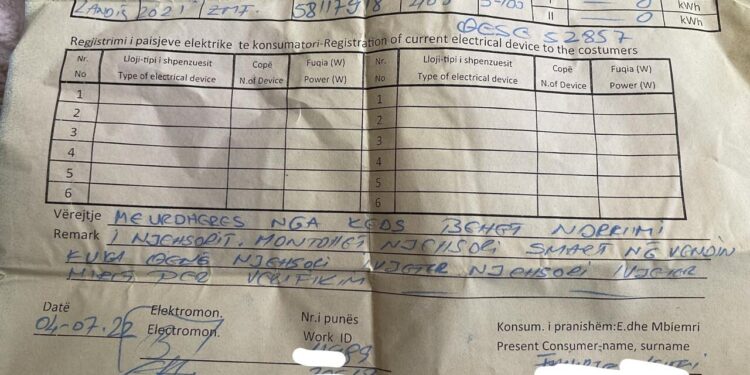 LANDIS 2021 ZMF. 58117918 5-100 0 kWh
II 0 kWh
QESE 52857
Regjistrimi i paisjeve elektrike te konsumatori-Registration of current electrical device to the costumers
Nr. Lloji-tipi i shpenzuesit Copë Fuqia (W) Nr. Lloji-tipi i shpenzuesit Copë Fuqia (W)
No Type of electrical device N.of Device Power (W) No Type of electrical device N.of Device Power (W)
1 1
2 2
3 3
4 4
5 5
6 6
Vërejtje ME URDHERES NGA KEDS BEHET NDRRIMI
Remark I NJEHSORIT. MONTOHET NJEHSORI SMART NË VENDIN
KU KA QENË NJEHSORI VJETER NJEHSORI VJETER
PER VERIFIKIM
Datë Elektromon. Nr.i punës Konsum. i pranishëm:E.dhe Mbiemri
04-07.22 Electromon. Work ID Present Consumer-name, surname